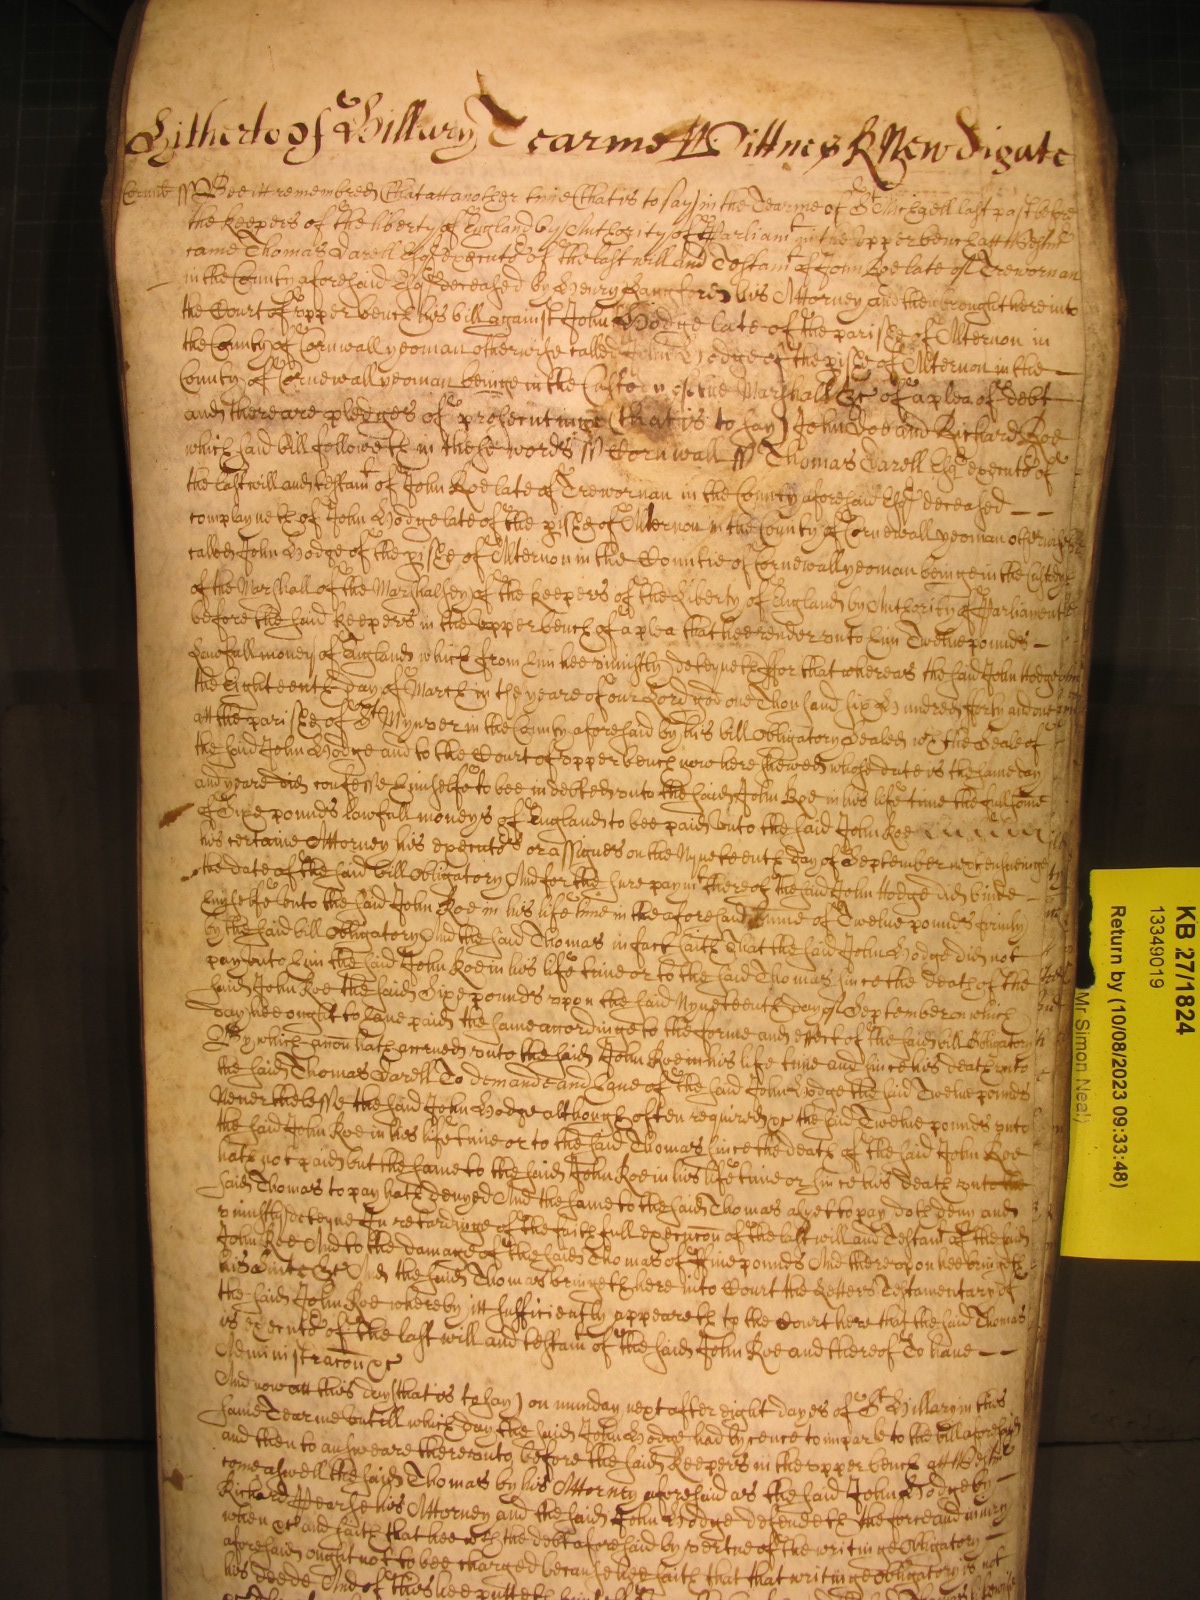 Hitherto of Hillary Tearme Wittnes R Newdigate
Cornub ss Bee itt remembred that att another time (that is to say) in the Tearme of St Michaell last past before
the keepers of the liberty of England by Authority of Parliamt in the upper bench att Westmr
came Thomas Darell Esqr executr of the last will and Testamt of John Roe late of Trewornan
in the County aforesaid Esqr deceased by Henry Langford his Attorney and then brought here into
the Court of upper bench his bill against John Hodge late of the parish of Alternon in
the County of Cornwall yeoman otherwise called John Hodge of the pish of Alternon in the
County of Cornewall yeoman beinge in the Custody of the Marshall &c of a plea of debt
and there are pledges of prosecutinge (that is to say) John Doe and Richard Roe
which said bill followeth in these words ss Cornwall ss Thomas Darell Esqr executr of
the last will and testamt of John Roe late of Trewornan in the County aforesaid Esqr deceased
complayneth of John Hodge late of the pish of Alternon in the County of Cornewall yeoman otherwise
called John Hodge of the pish of Alternon in the Countie of Cornewall yeoman beinge in the Custody
of the Marshall of the Marshalsey of the keepers of the Liberty of England by Authority of Parliament
before the said keepers in the upper bench of a plea that hee render unto him Twelve pounds
lawfull money of England which from him hee uniustly deteyneth ffor that whereas the said John Hodge
the Eighteenth day of March in the yeare of our Lord god one Thousand six Hundred forty and one
att the parish of St Mynver in the County aforesaid by his bill Obligatory Sealed wth the Seale of
the said John Hodge and to the Court of upper bench now here shewed whose date is the same day
and yeare did confesse himselfe to bee indebted unto the said John Roe in his life time the full some
of Sixe pounds lawfull moneys of England to bee paid unto the said John Roe
his certaine Attorney his executrs or assignes on the Nyneteenth day of September next ensueinge
the date of the said bill Obligatory And for the sure paymt thereof the said John Hodge did binde
himselfe unto the said John Roe in his life time in the aforesaid summe of Twelve pounds firmly
by the said bill Obligatory And the said Thomas in fact saith That the said John Hodge did not
pay unto him the said John Roe in his life time or to the said Thomas since the death of the
said John Roe the said Sixe pounds upon the said Nyneteenth day of September on which
day hee ought to have paid the same accordinge to the forme and effect of the said bill Obligatory
By which accon hath accrued unto the said John Roe in his life time and since his death unto
the said Thomas Darell To demand and have of the said John Hodge the said Twelve pounds
Neverthelesse the said John Hodge although often required &c the said Twelve pounds unto
the said John Roe in his life time or to the said Thomas since the death of the said John Roe
hath not paid but the same to the said John Roe in his life time or since his death unto the
said Thomas to pay hath denyed And the same to the said Thomas as yet to pay doth deny and
uniustly deteyne In retardinge of the faithfull execucon of the last will and Testamt of the said
John Roe And to the damage of the said Thomas of ffive pounds And thereupon hee bringeth
his suite &c And the said Thomas bringeth here into Court the Letters Testamentary of
the said John Roe whereby itt sufficiently appeareth to the Court here that the said Thomas
is executr of the last will and testamt of the said John Roe and thereof To have
Administracon &c
And now att this day (that is to say) on munday next after eight dayes of St Hillary in this
same Tearme untill which day the said John Hodge had lycence to imparle to the bill aforesaid
and then to answeare thereunto before the said keepers in the upper bench att Westmr
come aswell the said Thomas by his Attorney aforesaid as the said John Hodge by
Richard Pearse his Attorney and the said John Hodge defendeth the force and iniury
when &c and saith that hee wth the debt aforesaid by vertue of the writinge Obligatory
aforesaid ought not to bee charged because hee saith that that writinge obligatory is not
his deede And of this hee putteth himselfe
KB 27/1824
13349019
Return by (10/08/2023 09:33:48)
Mr Simon Neal